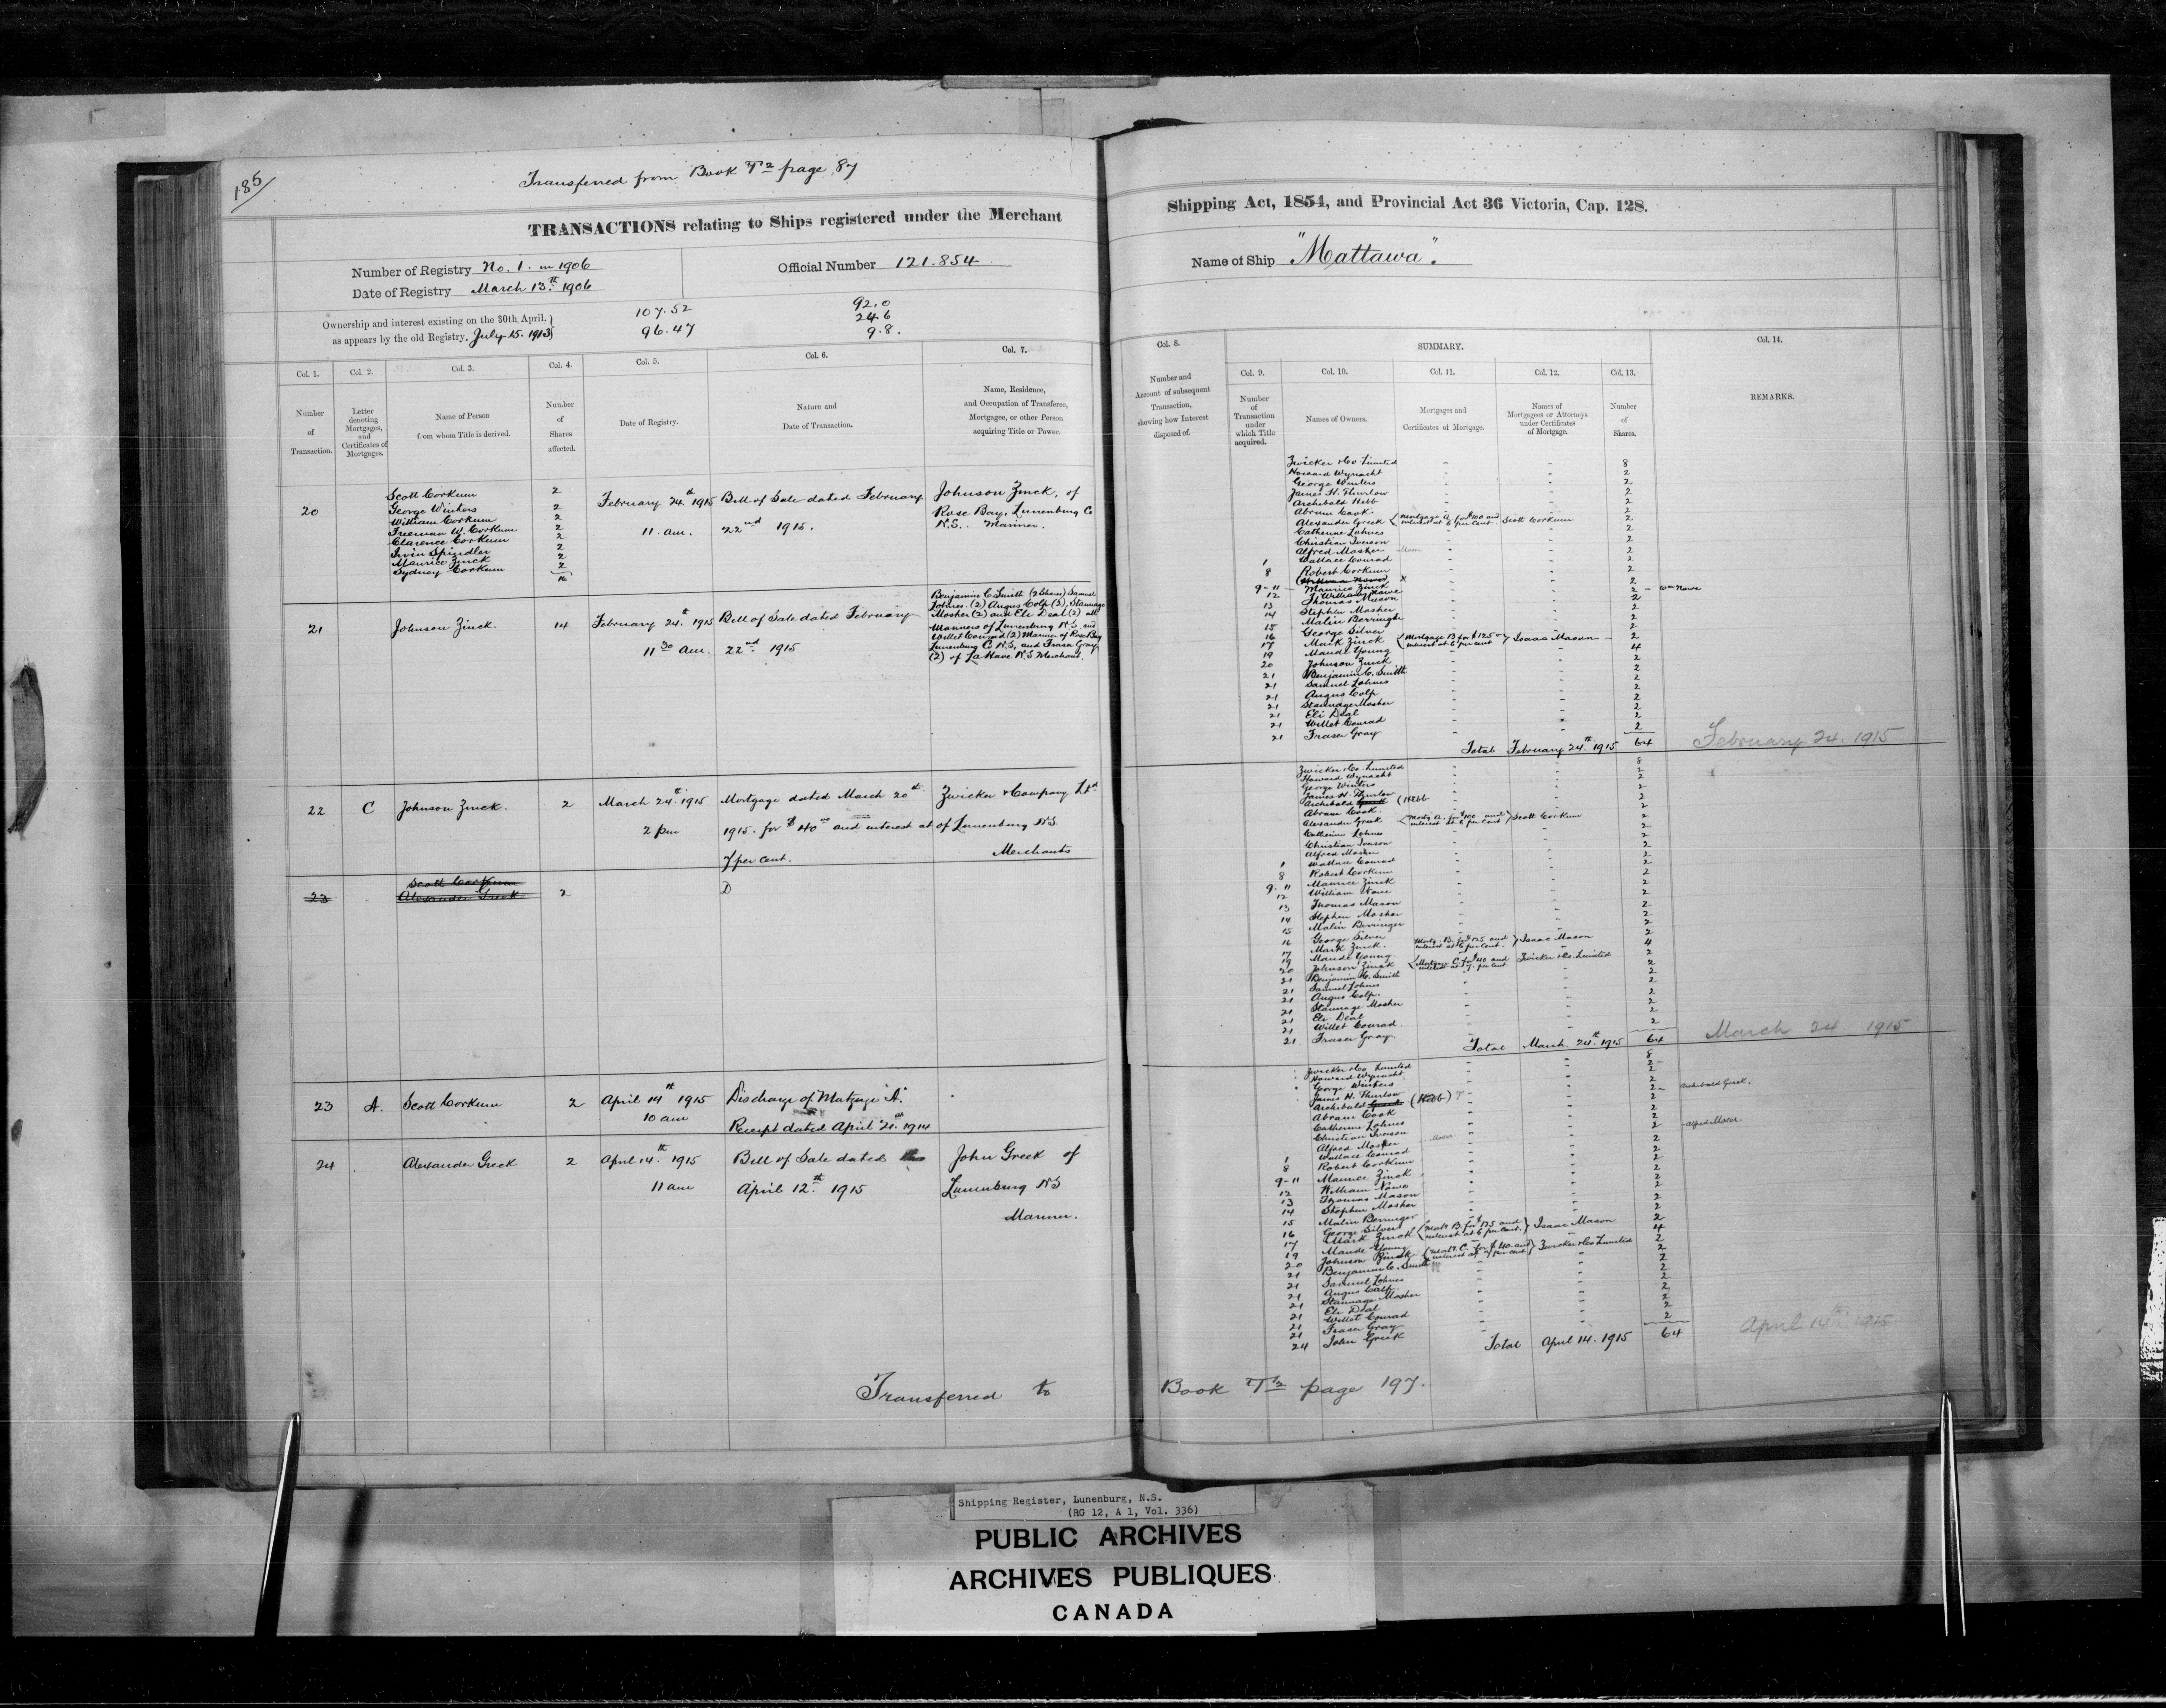 185
Transferred from Book T2 page 87
TRANSACTIONS relating to Ships registered under the Merchant
Number of Registry No. 1. in 1906
Official Number 121.854
Date of Registry March 13th 1906
Ownership and interest existing on the 30th April,
as appears by the old Registry. July 15. 1913
107.52
96.47
92.0
24.6
9.8.
Col. 1.
Col. 2.
Col. 3.
Col. 4.
Col. 5.
Col. 6.
Col. 7.
Number
of
Transaction.
Letter
denoting
Mortgages,
and
Certificates of
Mortgages.
Name of Person
from whom Title is derived.
Number
of
Shares
affected.
Date of Registry.
Nature and
Date of Transaction.
Name, Residence,
and Occupation of Transferee,
Mortgagee, or other Person
acquiring Title or Power.
20
Scott Corkum 2
George Winters 2
William Corkum 2
Freeman W. Corkum 2
Clarence Corkum 2
Irvin Spindler 2
Maurice Zinck 2
Sydney Corkum 2
16
February 24th 1915
11. am.
Bill of Sale dated February
22nd 1915.
Johnson Zinck, of
Rose Bay, Lunenburg Co
N.S. Mariner.
21
Johnson Zinck.
14
February 24th 1915
11 30 am.
Bill of Sale dated February
22nd 1915
Benjamin C. Smith (2 Shares) Samuel
Lohnes (2) Angus Colp (2), Stannage
Mosher (2) and Eli Deal (2) all
Mariners of Lunenburg N.S. and
Willet Conrad (2) Mariner of Rose Bay
Lunenburg Co N.S, and Fraser Gray
(2) of La Have N.S Merchant.
22
C
Johnson Zinck.
2
March 24th 1915
2 pm
Mortgage dated March 20th
1915. for $40 00 and interest at
7 per cent.
Zwicker & Company Ltd
of Lunenburg N.S.
Merchants
23
Scott Corkum
Alexander Greek
2
D
23
A.
Scott Corkum
2
April 14th 1915
10 am
Discharge of Mortgage "A".
Receipt dated April 21st 1914
24
Alexander Greek
2
April 14th 1915
11 am
Bill of Sale dated
April 12th 1915
John Greek of
Lunenburg NS
Mariner.
Transferred to
Shipping Act, 1854, and Provincial Act 36 Victoria, Cap. 128.
Name of Ship "Mattawa".
Col. 8.
SUMMARY.
Col. 14.
Col. 9.
Col. 10.
Col. 11.
Col. 12.
Col. 13.
Number and
Account of subsequent
Transaction,
showing how Interest
disposed of.
Number
of
Transaction
under
which Title
acquired.
Names of Owners.
Mortgages and
Certificates of Mortgage.
Names of
Mortgagees or Attorneys
under Certificates
of Mortgage.
Number
of
Shares.
REMARKS.
Zwicker & Co Limited - - 8
Howard Wynacht - - 2
George Winters - - 2
James H. Thurlow - - 2
Archibald Hebb - - 2
Abram Cook - - 2
Alexander Greek Mortgage A. for $100 and interest at 6 per cent. Scott Corkum 2
Catherine Lohnes - - 2
Christian Iverson - - 2
Alfred Mosher - - 2
1 Wallace Conrad - - 2
8 Robert Corkum - - 2
9-11 Maurice Zinck - - 2
12 William Nowe - - 2 - Wm Nowe
13 Thomas Mason - - 2
14 Stephen Mosher - - 2
15 Malin Berringer - - 2
16 George Silver - - 2
17 Mark Zinck Mortgage B for $125 interest at 6 per cent Isaac Mason - 2
19 Maude Young - - 4
20 Johnson Zinck - - 2
21 Benjamin C. Smith - - 2
21 Samuel Lohnes - - 2
21 Angus Colp - - 2
21 Stannage Mosher - - 2
21 Eli Deal - - 2
21 Willet Conrad - - 2
21 Fraser Gray - - 2
Total February 24th 1915 64
February 24. 1915
Zwicker & Co. Limited - - 8
Howard Wynacht - - 2
George Winters - - 2
James H. Thurlow - - 2
Archibald Greek (Hebb - - 2
Abram Cook. - - 2
Alexander Greek Mortg A. for $100 and interest at 6 per cent Scott Corkum 2
Catherine Lohnes - - 2
Christian Iverson - - 2
Alfred Mosher - - 2
1 Wallace Conrad - - 2
8 Robert Corkum - - 2
9-11 Maurice Zinck - - 2
12 William Nowe - - 2
13 Thomas Mason - - 2
14 Stephen Mosher - - 2
15 Malin Berringer - - 2
16 George Silver - - 2
17 Mark Zinck. Mortg. B. for $125 and interest at 6 per cent. Isaac Mason 2
19 Maude Young - - 4
20 Johnson Zinck Mortgage C. for $40 and interest at 7. per cent Zwicker & Co. Limited 2
21 Benjamin C. Smith - - 2
21 Samuel Lohnes - - 2
21 Angus Colp. - - 2
21 Stannage Mosher - - 2
21 Eli Deal - - 2
21 Willet Conrad. - - 2
21 Fraser Gray - - 2
Total March. 24th 1915 64
March 24 1915
Zwicker & Co Limited - - 8
Howard Wynacht - - 2
George Winters - - 2
James H. Thurlow - - 2
Archibald Greek (Hebb) - - 2 Archibald Greek.
Abram Cook - - 2
Catherine Lohnes - - 2
Christian Iverson - - 2
Alfred Mosher - - 2
1 Wallace Conrad - - 2
8 Robert Corkum - - 2
9-11 Maurice Zinck - - 2
12 William Nowe - - 2
13 Thomas Mason - - 2
14 Stephen Mosher - - 2
15 Malin Berringer - - 2
16 George Silver - - 2
17 Mark Zinck Mortg B. for $125 and interest at 6 per cent. Isaac Mason 2
19 Maude Young - - 4
20 Johnson Zinck Mortg. C for $40. and interest at 7 per cent Zwicker & Co Limited 2
21 Benjamin C. Smith - - 2
21 Samuel Lohnes - - 2
21 Angus Colp - - 2
21 Stannage Mosher - - 2
21 Eli Deal - - 2
21 Willet Conrad - - 2
21 Fraser Gray - - 2
24 John Greek - - 2
Total April 14. 1915 64
April 14th 1915
Book T2 page 197.
Shipping Register, Lunenburg, N.S.
(RG 12, A 1, Vol. 336)
PUBLIC ARCHIVES
ARCHIVES PUBLIQUES
CANADA